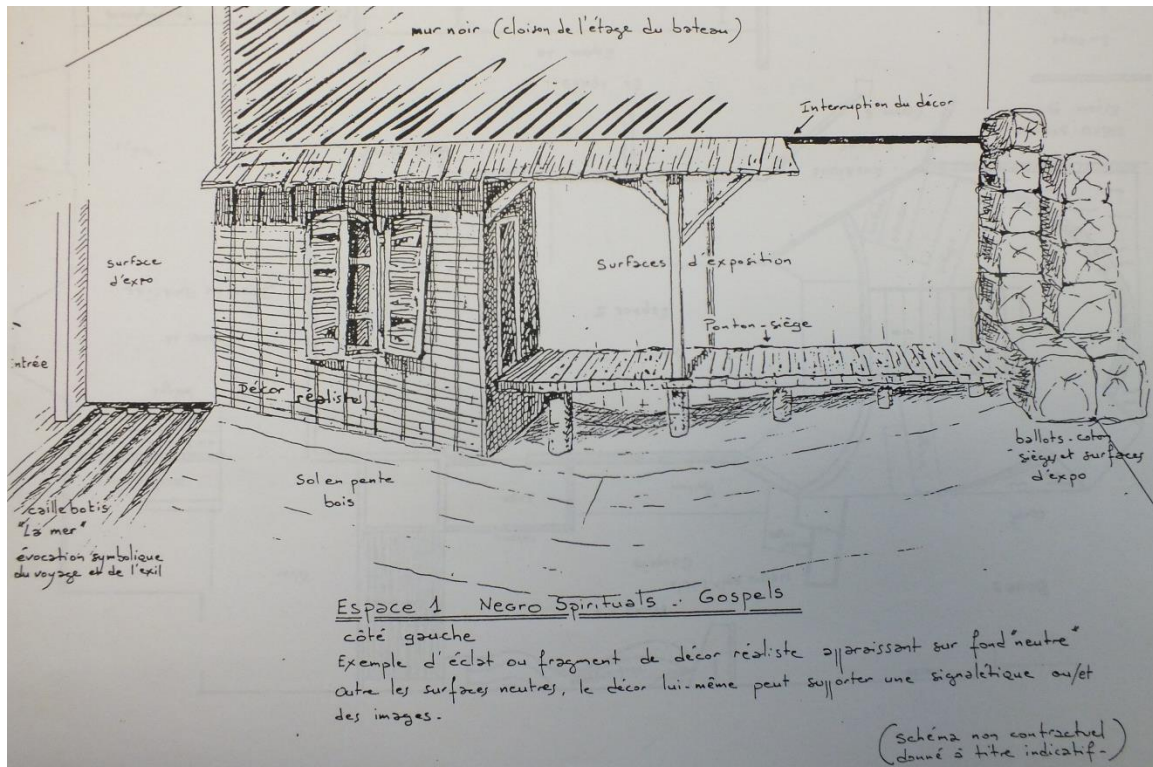 mur noir (cloison de l'étage du bateau)
Interruption du décor
surface
d'expo
Surfaces d'exposition
Ponton-siège
intrée
Décor réaliste
ballots-coton
-sièges et surfaces
d'expo
Sol en pente
bois
caillebotis
"La mer"
évocation symbolique
du voyage et de l'exil
Espace 1 Negro Spirituals. Gospels
côté gauche
Exemple d'éclat ou fragment de décor réaliste apparaissant sur fond "neutre"
Outre les surfaces neutres, le décor lui-même peut supporter une signalétique ou/et
des images.
(schéma non contractuel
donné à titre indicatif-)